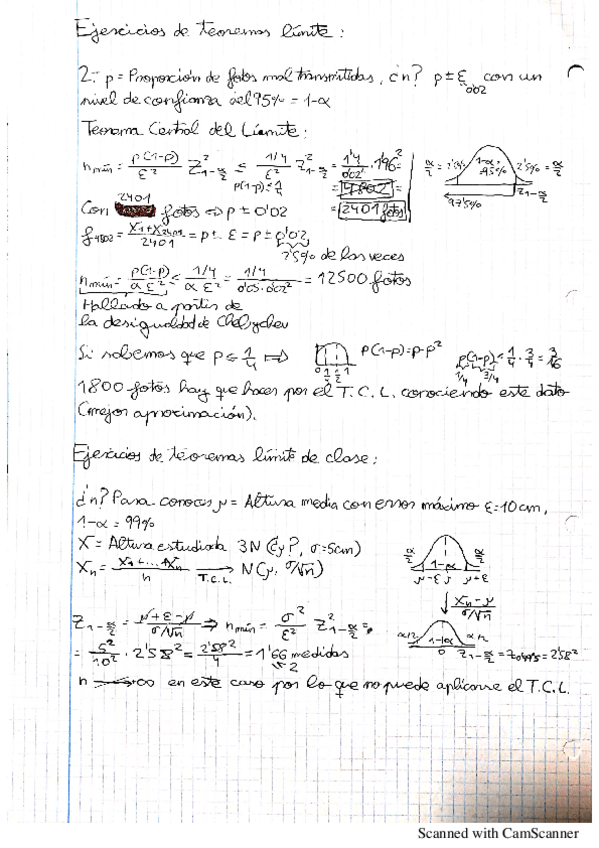 Ejercicios de teoremas límite:
2.- p = Proporción de fotos mal transmitidas, ¿n? p ± ε, con un
0'02
nivel de confianza del 95% = 1-α
Teorema Central del Límite:
n mín = p(1-p)/ε² Z²1-α/2 ≤ 1/4/ε² Z²1-α/2 = 1/4/0'02² · 1'96² =
p(1-p) = 1/4
= 4802 =
= 2401 fotos
α/2 = 2'5% 1-α = 95% 2'5% = α/2
Z1-α/2
97'5%
2401
Con fotos ⇒ p ± 0'02
f4802 = X1+X2401/2401 = p ± ε = p ± 0'02
95% de las veces
n mín = p(1-p)/α ε² ≤ 1/4/α ε² = 1/4/0'05·0'02² = 12500 fotos
Hallado a partir de
la desigualdad de Chebychev
Si sabemos que p ≤ 1/4 ⟹ 0 1/4 1/2 1 p(1-p) = p-p² p(1-p) ≤ 1/4 · 3/4 = 3/16
1/4 3/4
1800 fotos hay que hacer por el T.C.L. conociendo este dato
(mejor aproximación).
Ejercicios de teoremas límite de clase:
¿n? Para conocer μ = Altura media con error máximo ε=10cm,
1-α = 99%
X = Altura estudiada N(¿μ?, σ=5cm)
X̄n = X1+...+Xn/n → T.C.L. N(μ, σ/√n)
α/2 1-α α/2
μ-ε μ μ+ε
X̄n-μ/σ/√n
Z1-α/2 = μ+ε-μ/σ/√n ⇒ n mín = σ²/ε² Z²1-α/2 =
α/2 1-α α/2
0 Z1-α/2 = Z0'995 = 2'58²
= 5²/10² · 2'58² = 2'58²/4 = 1'66 medidas
2
n → ∞ en este caso por lo que no puede aplicarse el T.C.L.
Scanned with CamScanner